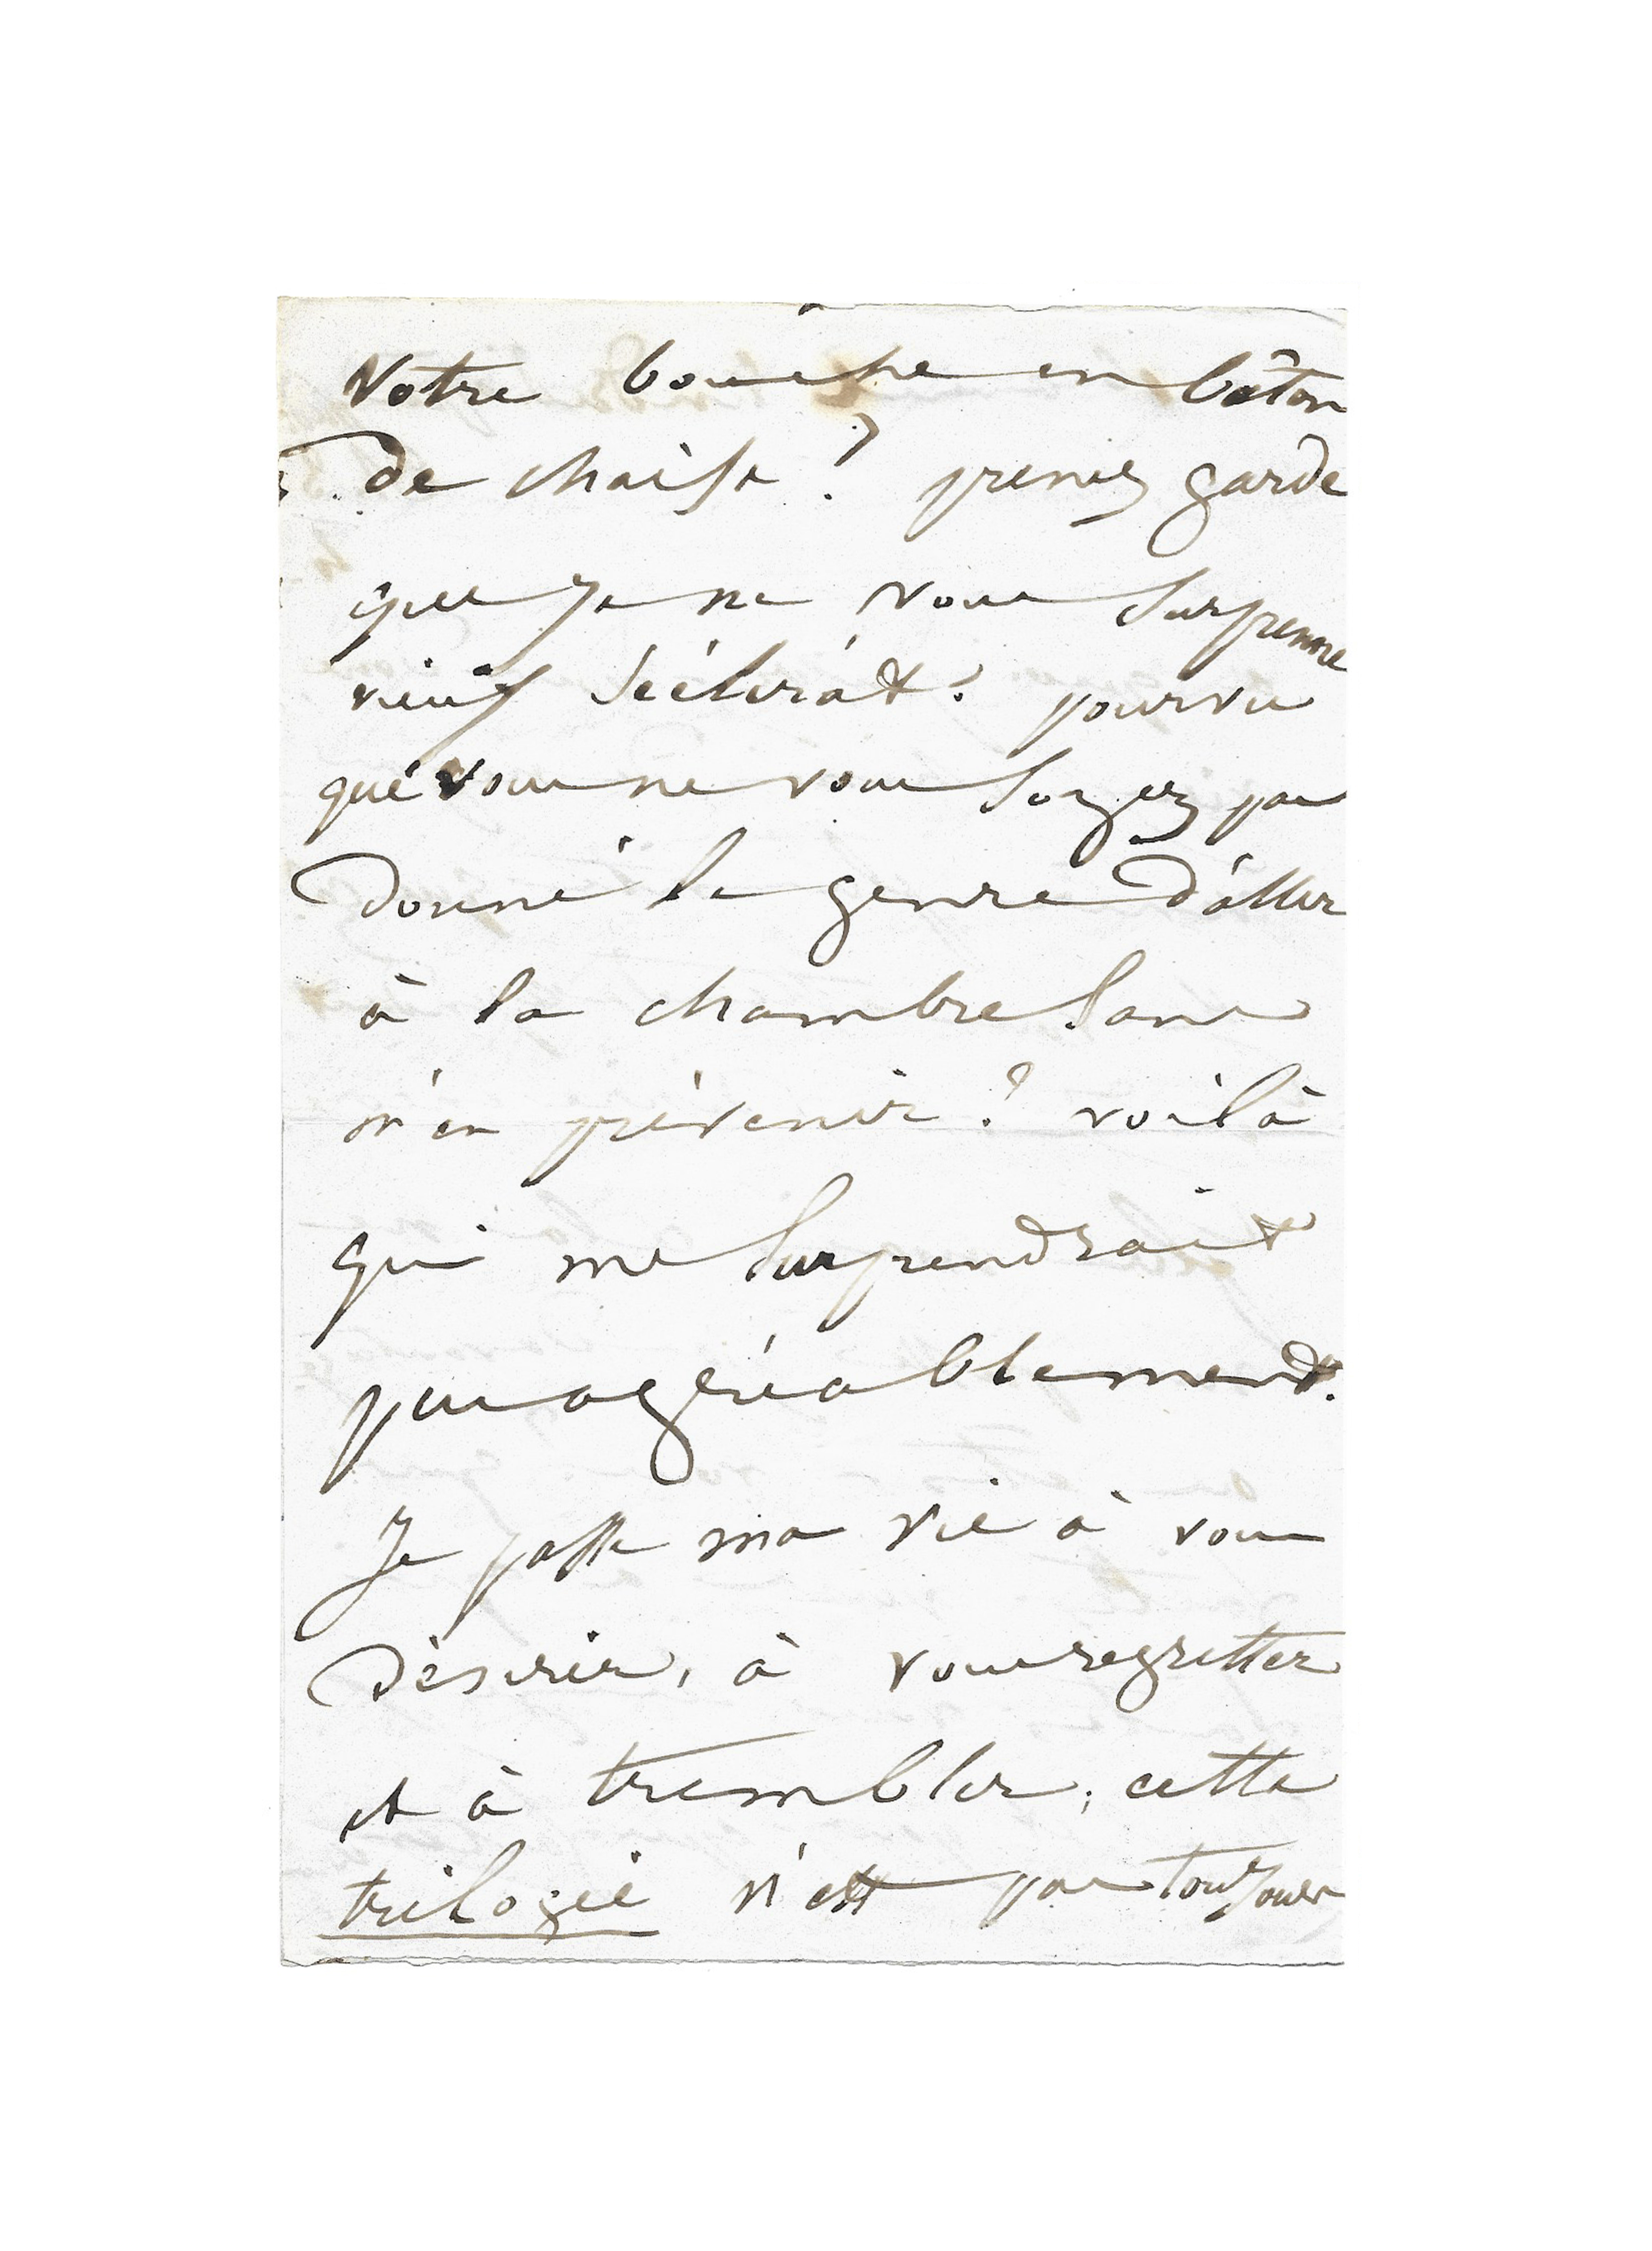 votre bouche en bâton
de chaise ? prenez garde
que je ne vous surprenne
vieux scélérat ! pourvu
que vous ne vous soyez pas
donné le genre d'aller
à la chambre sans
m'en prévenir ? voilà
qui me surprendrait
peu agréablement.
Je passe ma vie à vous
désirer, à vous regretter
et à trembler ; cette
trilogie n'est pas toujours